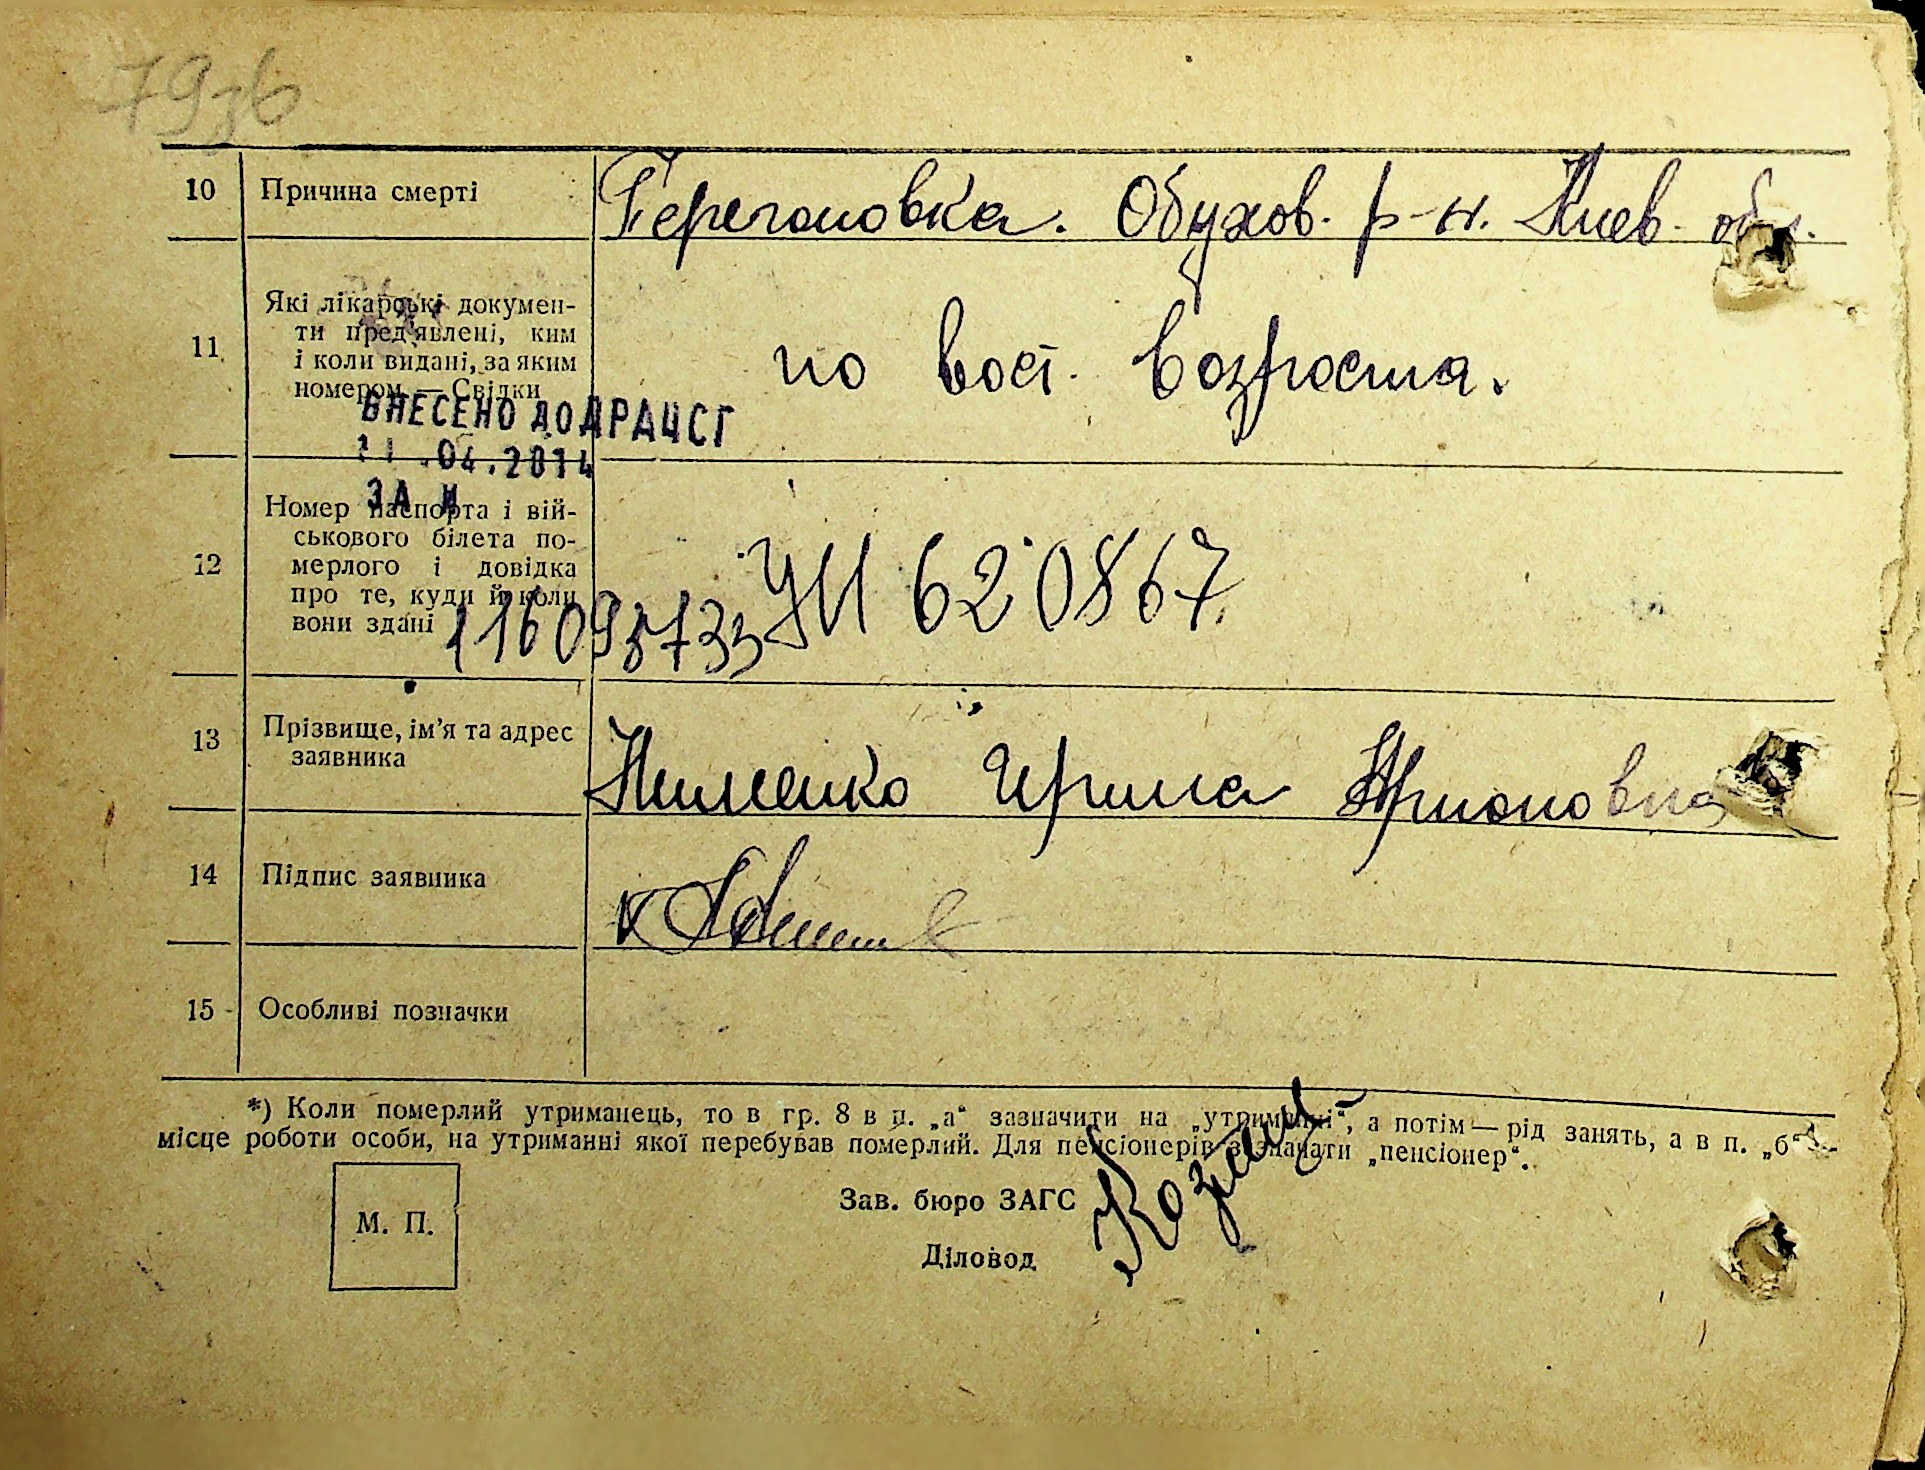 79зв
10 Причина смерті Герегоновка. Обухов. р-н. Киев. обл.
11 Які лікарські докумен-
ти пред'явлені, ким
і коли видані, за яким
номером — Свідки
по вост. возроста.
ВНЕСЕНО ДО ДРАЦСГ
.04.2014
ЗА №
12 Номер паспорта і вій-
ськового білета по-
мерлого і довідка
про те, куди й коли
вони здані
УИ 620867.
13 Прізвище, ім'я та адрес
заявника
Ирина
14 Підпис заявника
15 Особливі позначки
*) Коли померлий утриманець, то в гр. 8 в п. „а“ зазначити на „утриманні“, а потім — рід занять, а в п. „б“ —
місце роботи особи, на утриманні якої перебував померлий. Для пенсіонерів зазначати „пенсіонер“.
М. П.
Зав. бюро ЗАГС
Діловод